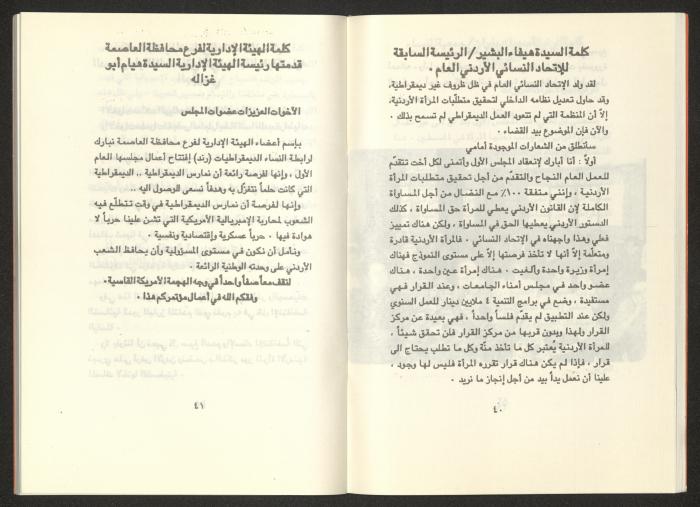 كلمة السيدة هيفاء البشير / الرئيسة السابقة
للإتحاد النسائي الأردني العام .
لقد ولد الإتحاد النسائي العام في ظل ظروف غير ديمقراطية،
وقد حاول تعديل نظامه الداخلي لتحقيق متطلّبات المرأة الأردنية،
إلاّ أن المنظمة التي لم تتعود العمل الديمقراطي لم تسمح بذلك .
والآن فإن الموضوع بيد القضاء .
سأنطلق من الشعارات الموجودة أمامي
أولاً : أنا أبارك لإنعقاد المجلس الأول وأتمنى لكل أخت تتقدّم
للعمل العام النجاح والتقدّم من أجل تحقيق متطلبات المرأة
الأردنية ، وإنني متفقة ١٠٠٪ مع النضال من أجل المساواة
الكاملة لإن القانون الأردني يعطي للمرأة حق المساواة ، كذلك
الدستور الأردني يعطيها الحق في المساواة ، ولكن هناك تمييز
فعلي وهذا واجهناه في الإتحاد النسائي . فالمرأة الأردنية قادرة
ومتعلّمة إلاّ أنها لا تأخذ فرصتها إلاّ على مستوى النموذج فهناك
إمرأة وزيرة واحدة وألغيت . هناك إمرأة عين واحدة ، هناك
عضو واحد في مجلس أمناء الجامعات ، وعند القرار فهي
مستفيدة ، وضع في برامج التنمية ٤ ملايين دينار للعمل النسوي
ولكن عند التطبيق لم يقدّم فلساً واحداً ، فهي بعيدة عن مركز
القرار ولهذا وبدون قربها من مركز القرار فلن تحقق شيئاً .
للمرأة الأردنية يُعتبر كل ما تأخذ منّة وكل ما تطلب يحتاج الى
قرار ، فإذا لم يكن هناك قرار تقرره المرأة فليس لها وجود ،
علينا أن نعمل يداً بيد من أجل إنجاز ما نريد .
٤٠
كلمة الهيئة الإدارية لفرع محافظة العاصمة
قدمتها رئيسة الهيئة الإدارية السيدة هيام أبو
غزاله
الأخوات العزيزات عضوات المجلس
بإسم أعضاء الهيئة الإدارية لفرع محافظة العاصمة نبارك
لرابطة النساء الديمقراطيات (رند) إفتتاح أعمال مجلسها العام
الأول ، وإنها لفرصة رائعة أن نمارس الديمقراطية .. الديمقراطية
التي كانت حلماً نتغزّل به وهدفاً نسعى للوصول اليه ..
وإنها لفرصة أن نمارس الديمقراطية في وقت تتطلّع فيه
الشعوب لمحاربة الإمبريالية الأمريكية التي تشن علينا حرباً لا
هوادة فيها . حرباً عسكرية وإقتصادية ونفسية .
ونأمل أن نكون في مستوى المسؤولية وأن يحافظ الشعب
الأردني على وحدته الوطنية الرائعة .
لنقف معاً صفاً واحداً في وجه الهجمة الأمريكة القاسية .
وفقكم الله في أعمال مؤتمركم هذا .
٤١